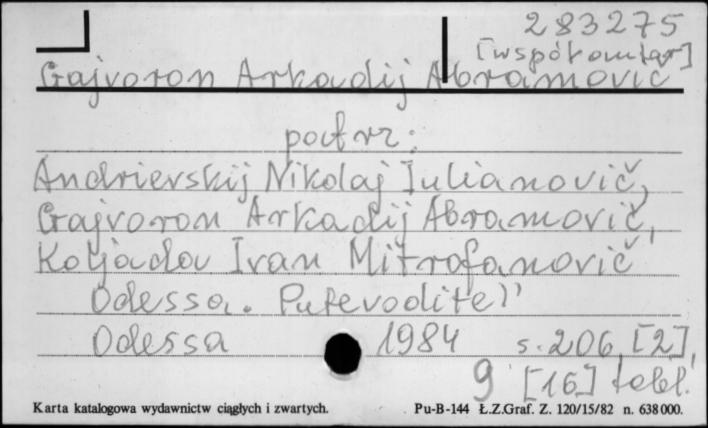 283275
[współautor]
Gajvoron Arkadij Abramovič
patrz:
Andrievskij Nikolaj Iulianovič,
Gajvoron Arkadij Abramovič,
Koljada Ivan Mitrofanovič
Odessa. Putevoditel'
Odessa 1984 s. 206, [2],
9 [16] tabl.
Karta katalogowa wydawnictw ciągłych i zwartych. Pu-B-144 Ł.Z.Graf. Z. 120/15/82 n. 638000.